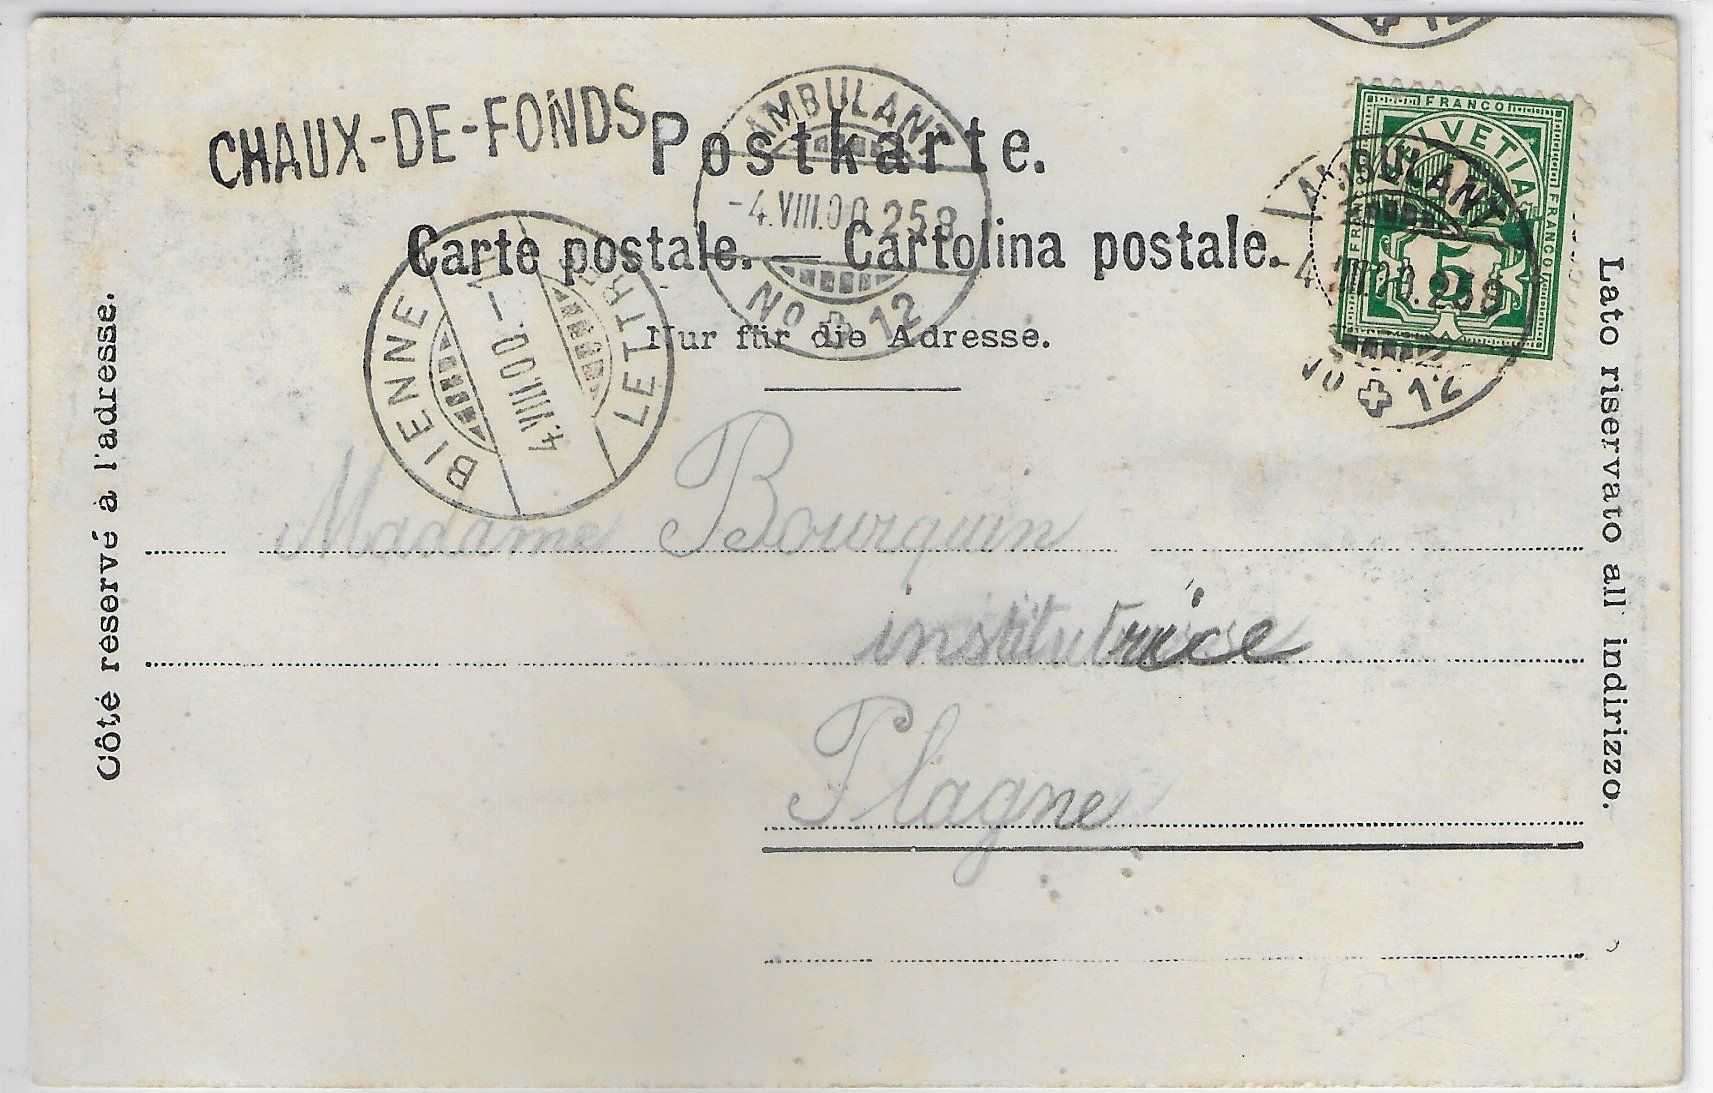 CHAUX-DE-FONDS
Postkarte.
Carte postale. — Cartolina postale.
Nur für die Adresse.
AMBULANT
-4.VIII.00.258
No 12
BIENNE LETTRE
4.VIII.00.—
FRANCO
HELVETIA
FRANCO
FRANCO
5
AMBULANT
-4.VIII.00.258
No 12
12
Côté reservé à l'adresse.
Lato riservato all indirizzo.
Madame Bourquin
institutrice
Plagne